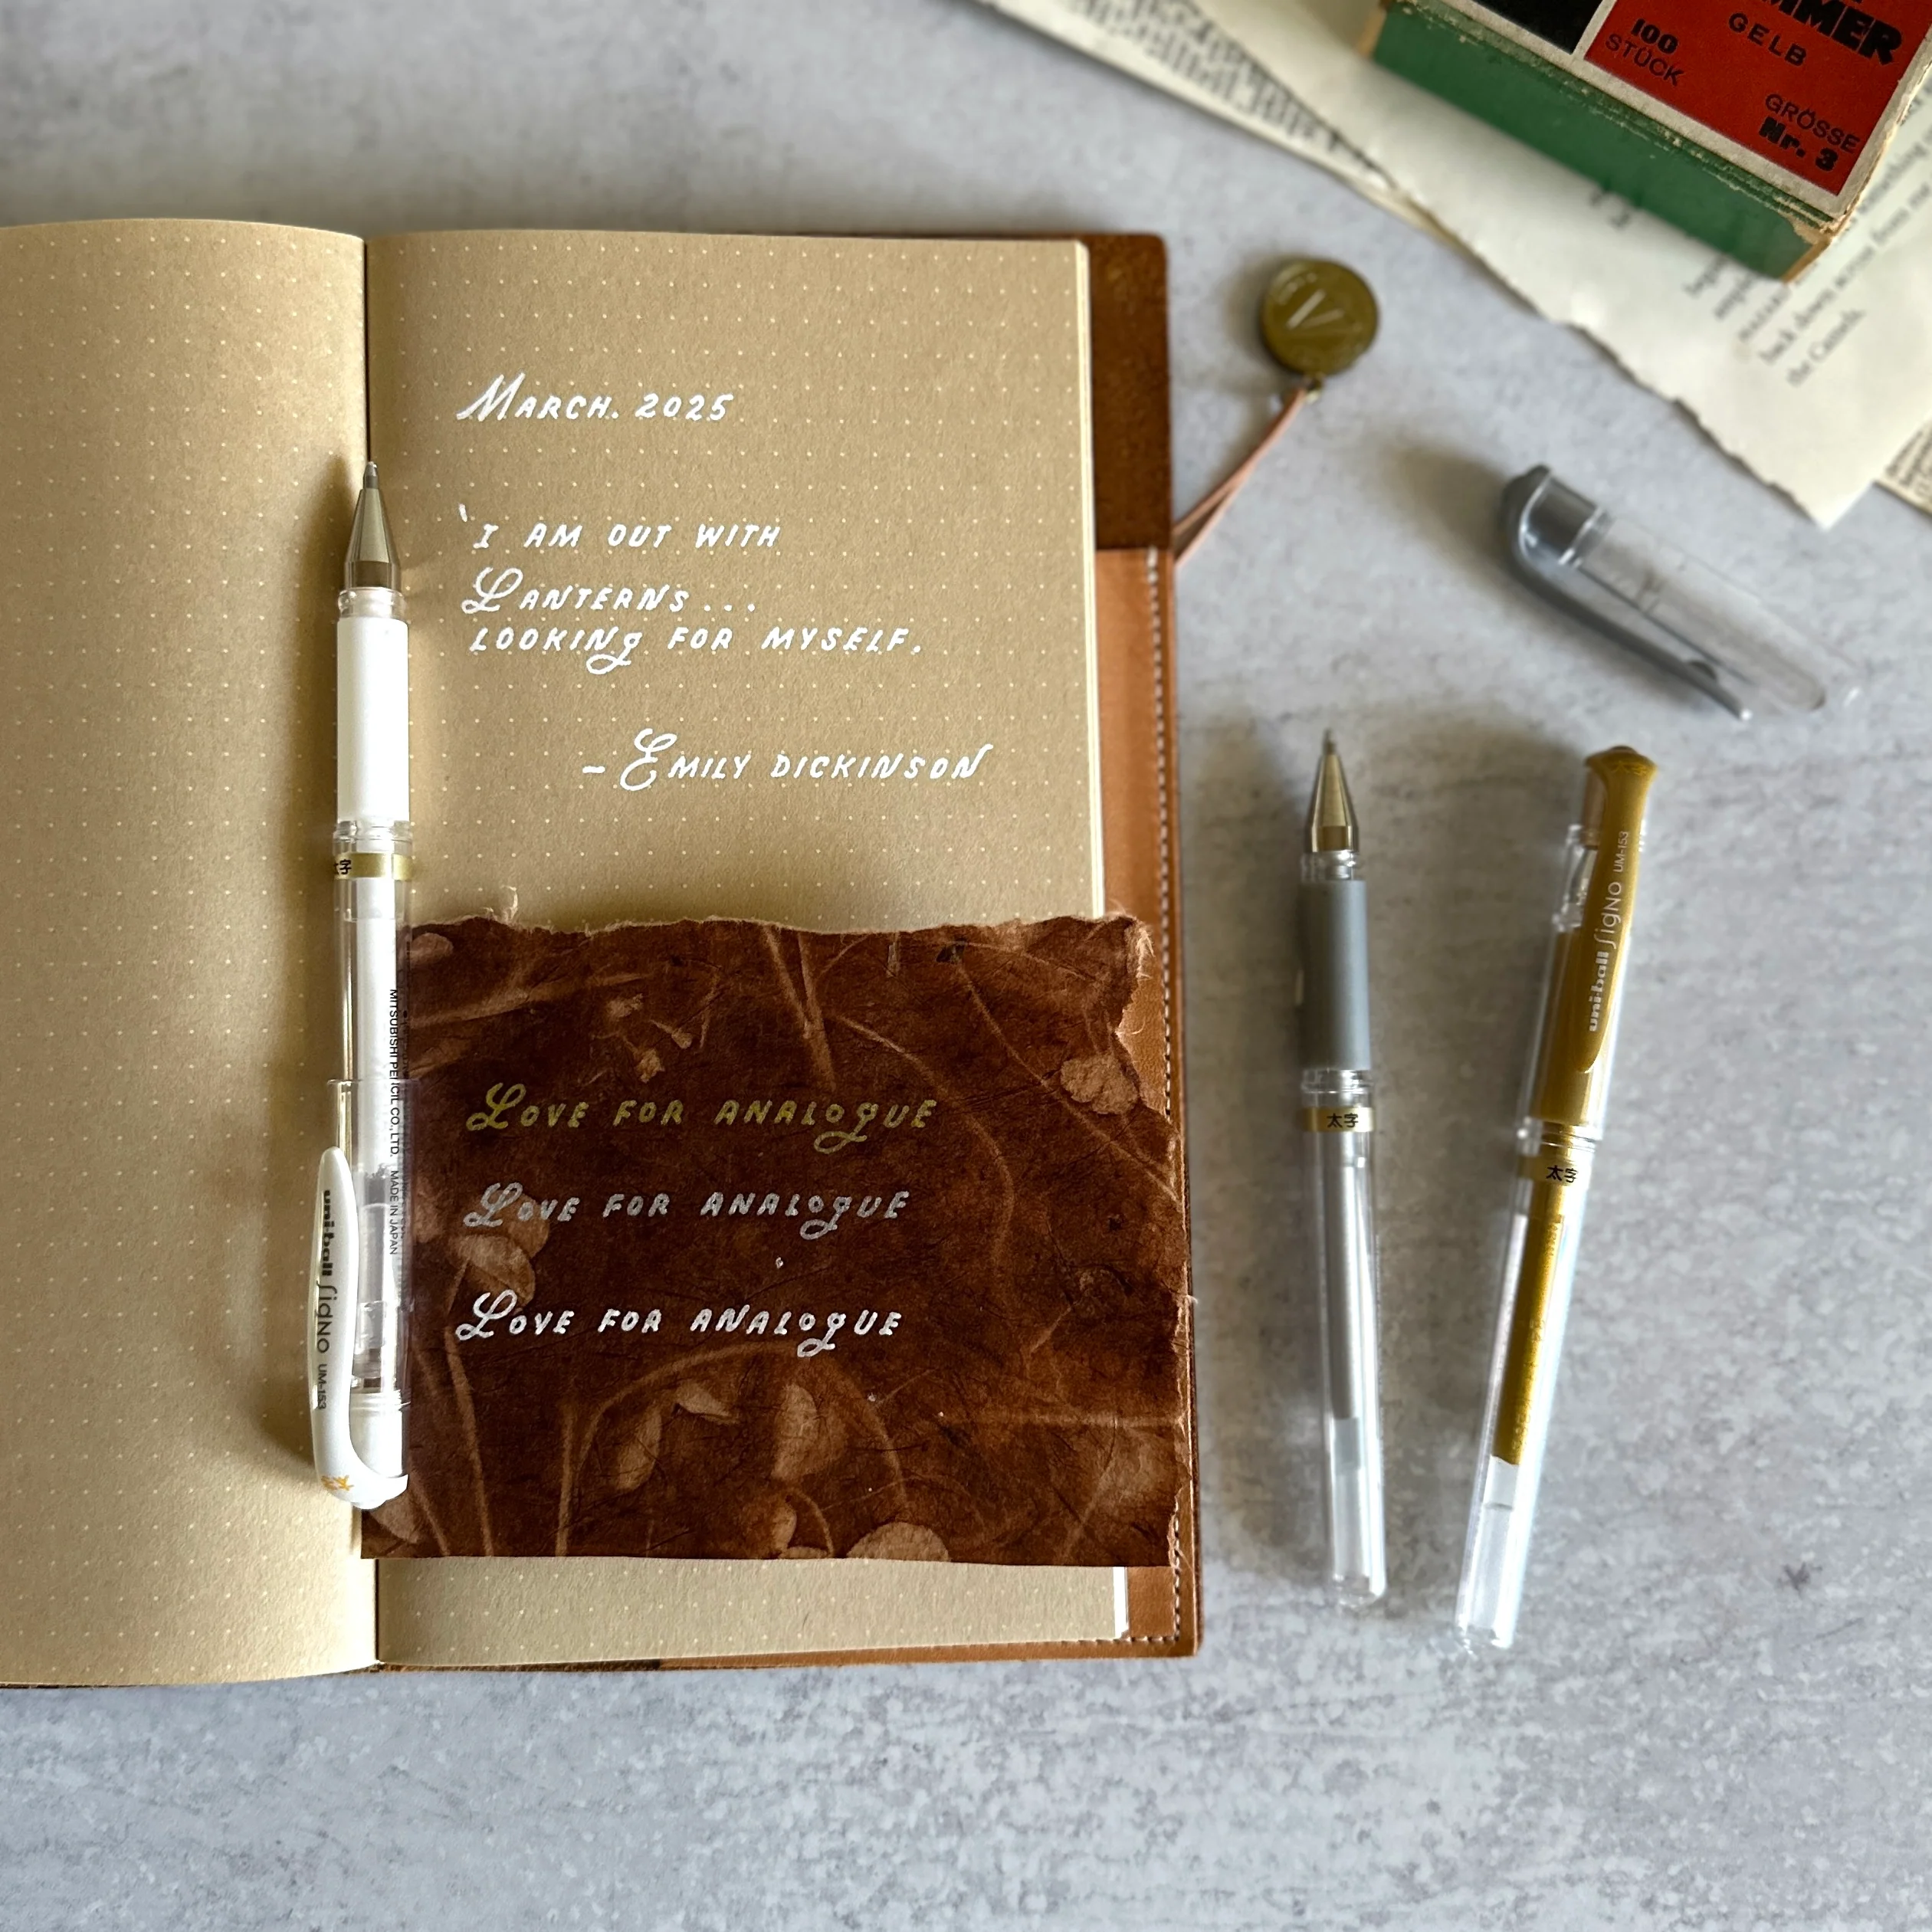 MARCH. 2025
'I AM OUT WITH
LANTERNS...
LOOKING FOR MYSELF.
- EMILY DICKINSON
LOVE FOR ANALOGUE
LOVE FOR ANALOGUE
LOVE FOR ANALOGUE
太字
MITSUBISHI PENCIL CO., LTD. MADE IN JAPAN
uni-ball Signo UM-153
太字
uni-ball Signo UM-153
太字
V
100
STÜCK
GELB
GRÖSSE
Nr. 3
back down across from
the Camels.